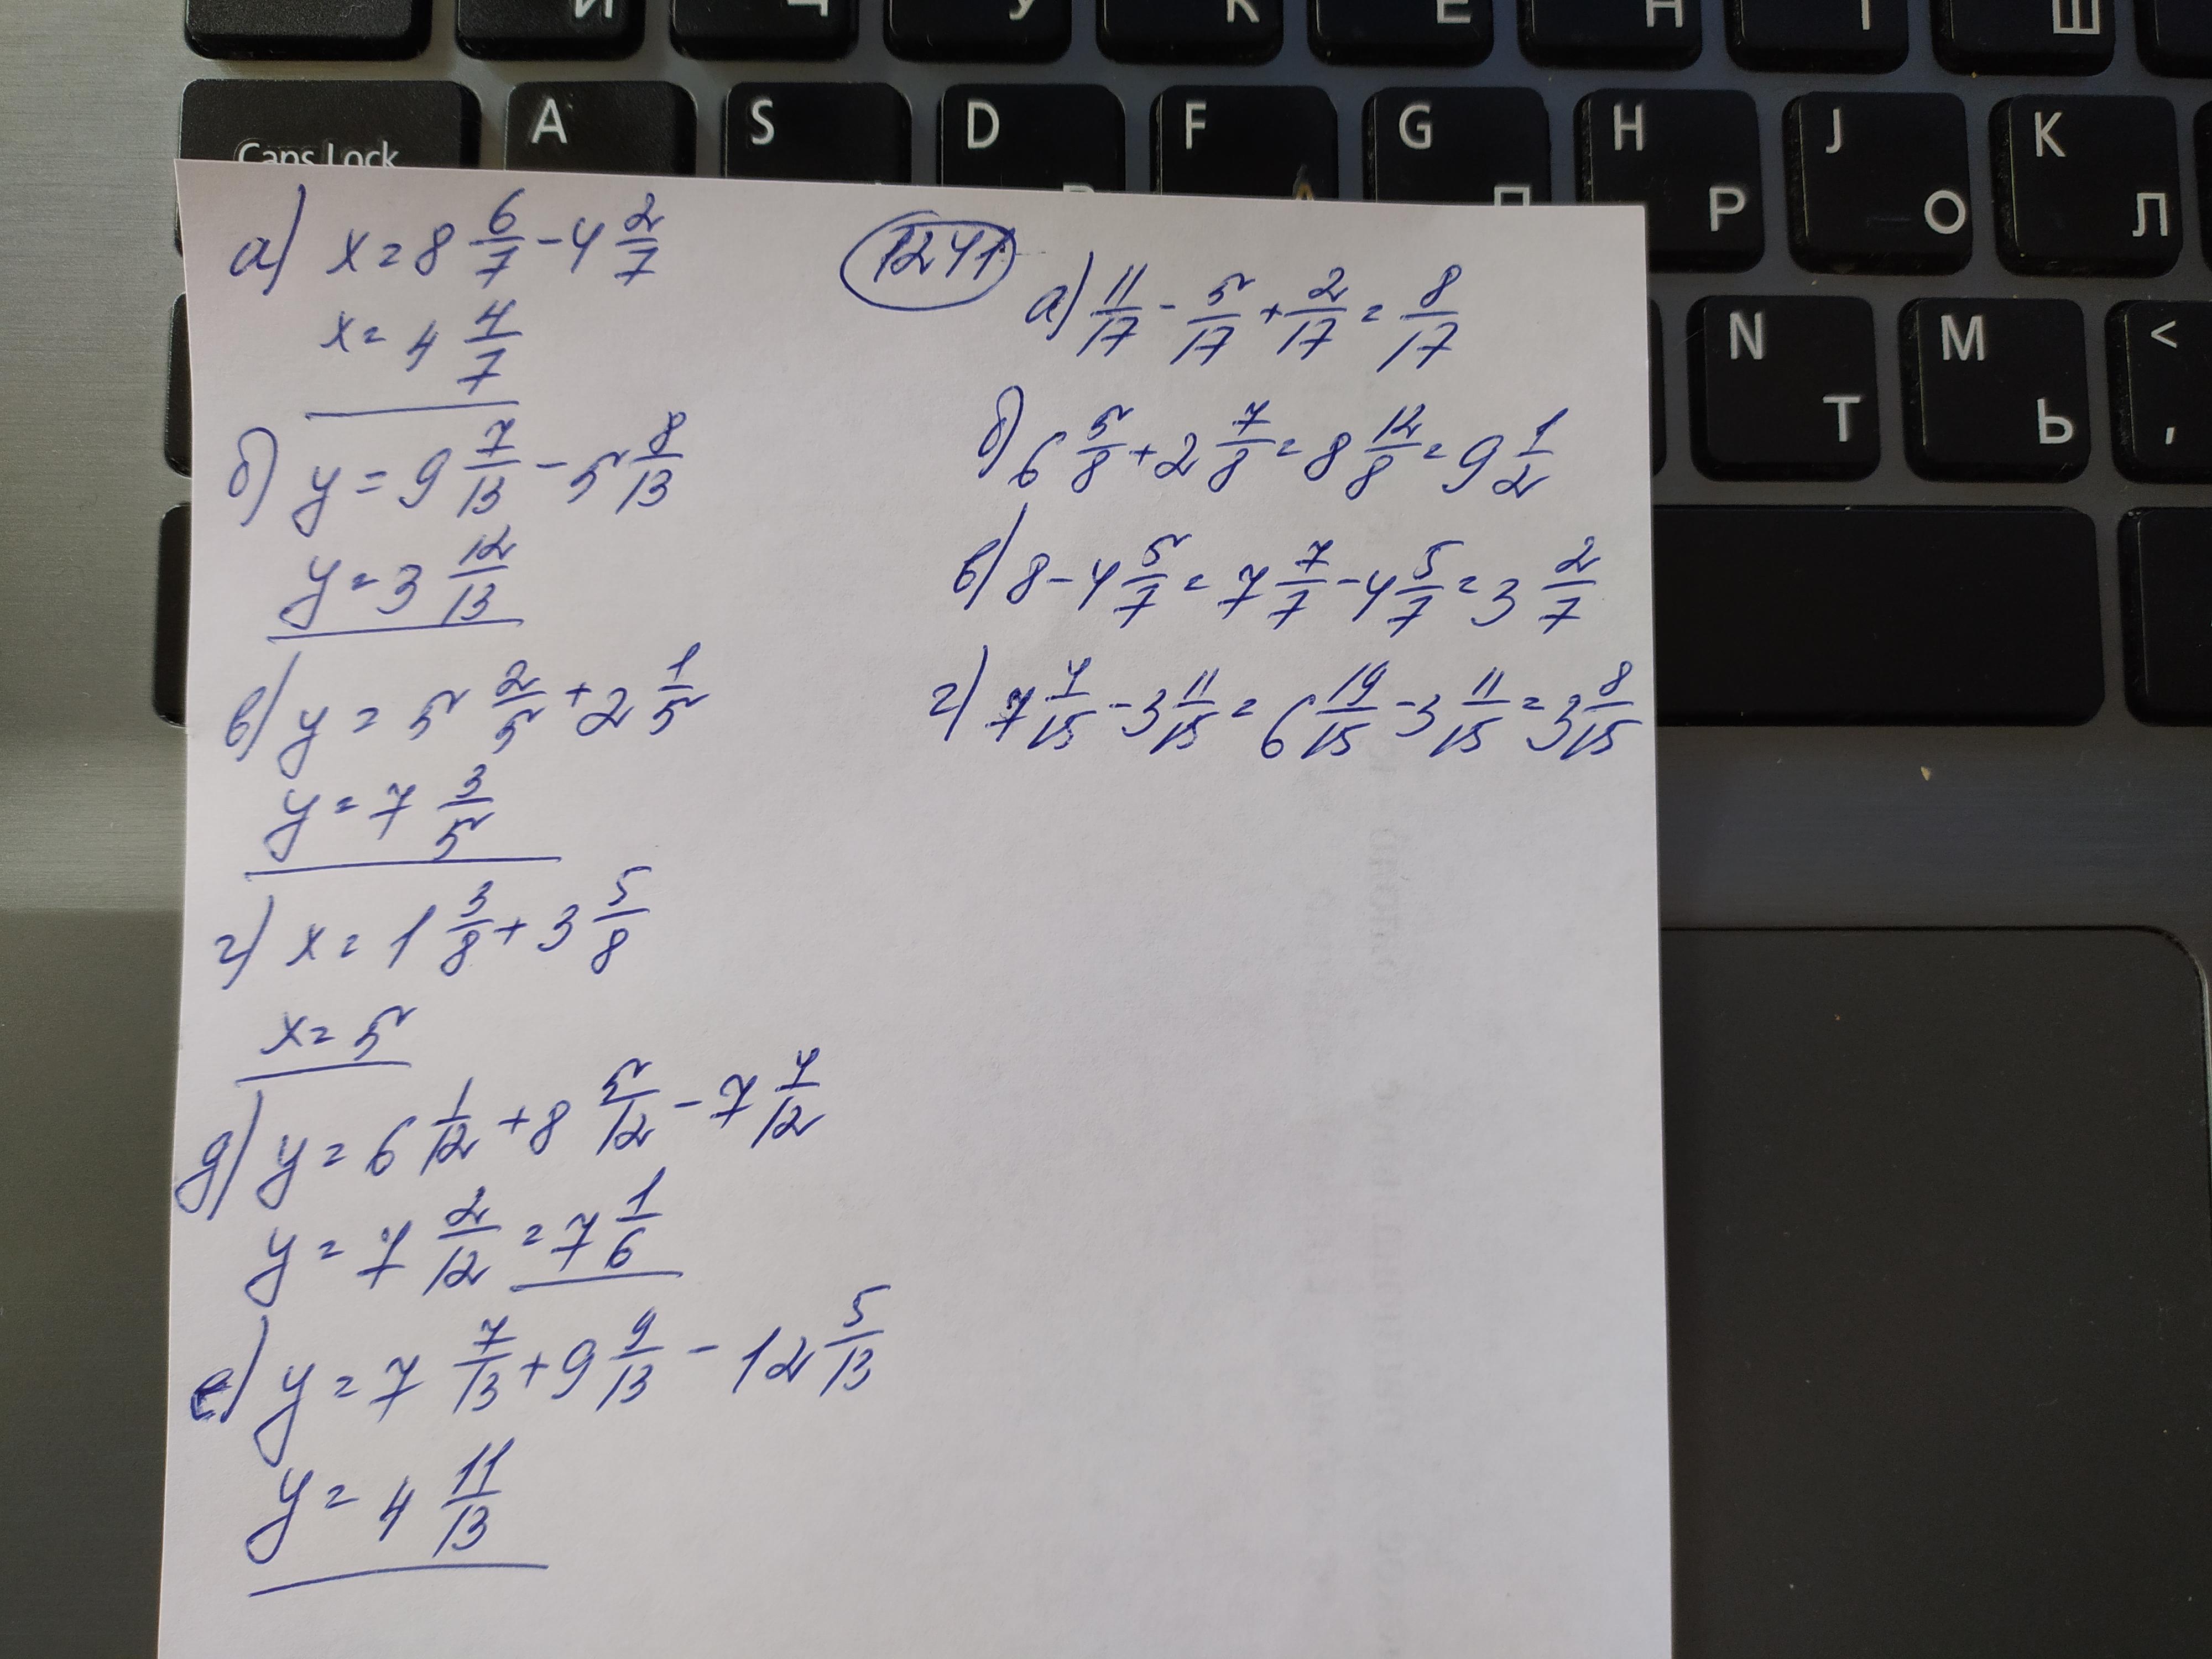 Й Ц У К Е Н Г Ш
Caps Lock A S D F G H J K
А П Р О Л
N M <
Т Ь ,
а) x = 8 6/7 - 4 2/7
x = 4 4/7
б) y = 9 7/13 - 5 8/13
y = 3 12/13
в) y = 5 2/5 + 2 1/5
y = 7 3/5
г) x = 1 3/8 + 3 5/8
x = 5
д) y = 6 1/12 + 8 5/12 - 7 4/12
y = 7 2/12 = 7 1/6
е) y = 7 7/13 + 9 9/13 - 12 5/13
y = 4 11/13
1241
а) 11/17 - 5/17 + 2/17 = 8/17
б) 6 5/8 + 2 7/8 = 8 12/8 = 9 1/2
в) 8 - 4 5/7 = 7 7/7 - 4 5/7 = 3 2/7
г) 7 4/15 - 3 11/15 = 6 19/15 - 3 11/15 = 3 8/15